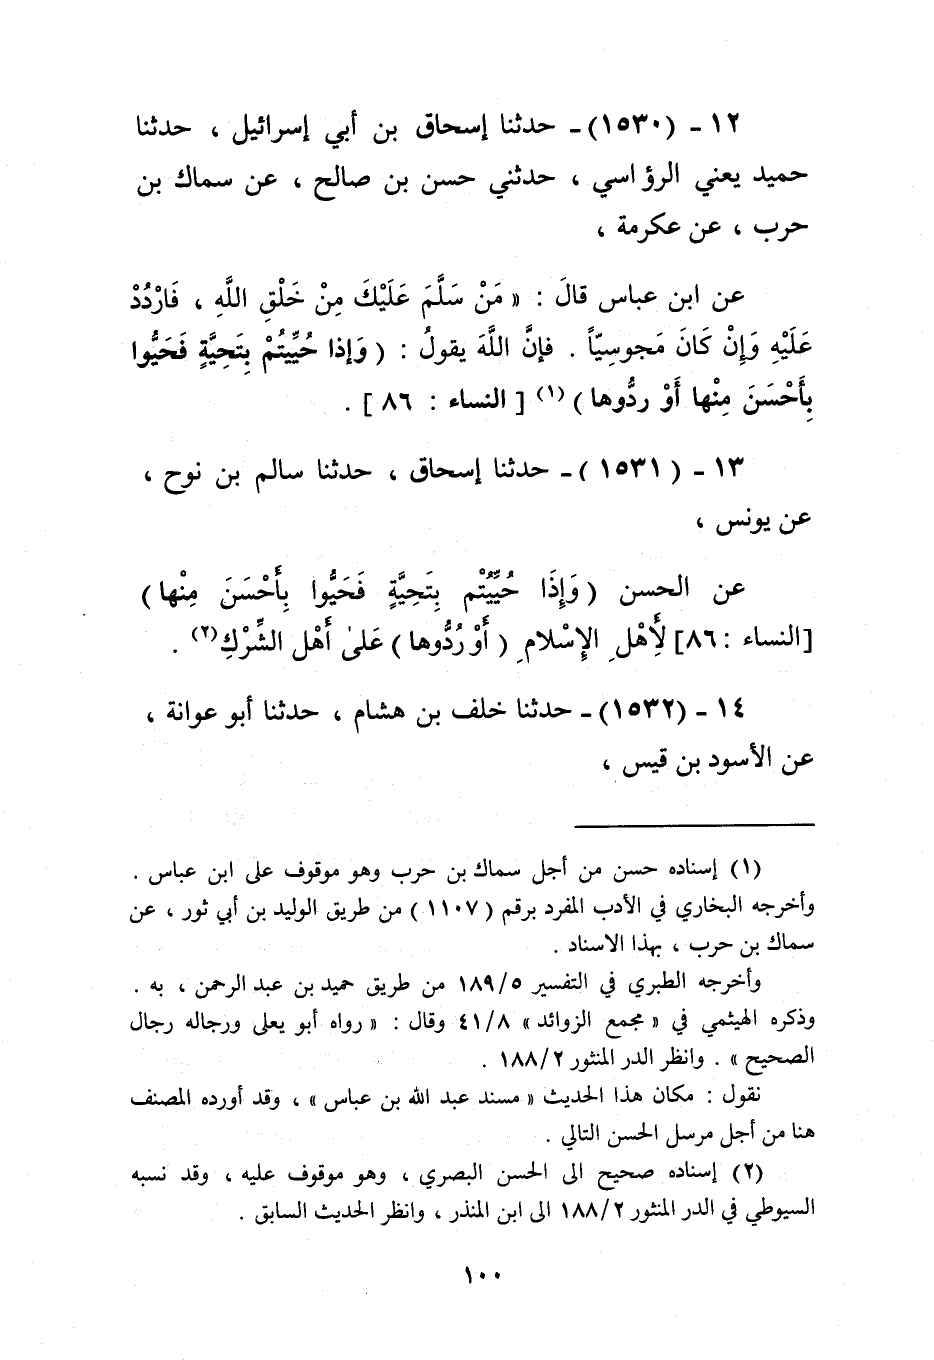 ١٢ - (١٥٣٠) - حدثنا إسحاق بن أبي إسرائيل ، حدثنا
حميد يعني الرؤاسي ، حدثني حسن بن صالح ، عن سماك بن
حرب ، عن عكرمة ،
عن ابن عباس قالَ : « مَنْ سَلَّمَ عَلَيْكَ مِنْ خَلْقِ اللَّهِ ، فَارْدُدْ
عَلَيْهِ وَإِنْ كَانَ مَجوسِيّاً . فإنَّ اللَّهَ يقولُ : ( وَإذا حُيِّيتُمْ بِتَحِيَّةٍ فَحَيُّوا
بِأَحْسَنَ مِنْها أَوْ ردُّوها ) (١) [ النساء : ٨٦ ] .
١٣ - ( ١٥٣١ ) - حدثنا إسحاق ، حدثنا سالم بن نوح ،
عن يونس ،
عن الحسن ( وَإِذَا حُيِّيْتُم بِتَحِيَّةٍ فَحَيُّوا بِأَحْسَنَ مِنْها )
[النساء : ٨٦] لِأَهْلِ الإِسْلامِ ( أَوْ رُدُّوها ) عَلىٰ أَهْل الشِّرْكِ (٢) .
١٤ - (١٥٣٢) - حدثنا خلف بن هشام ، حدثنا أبو عوانة ،
عن الأسود بن قيس ،
(١) إسناده حسن من أجل سماك بن حرب وهو موقوف على ابن عباس .
وأخرجه البخاري في الأدب المفرد برقم ( ١١٠٧ ) من طريق الوليد بن أبي ثور ، عن
سماك بن حرب ، بهذا الاسناد .
وأخرجه الطبري في التفسير ١٨٩/٥ من طريق حميد بن عبد الرحمن ، به .
وذكره الهيثمي في « مجمع الزوائد » ٤١/٨ وقال : « رواه أبو يعلى ورجاله رجال
الصحيح » . وانظر الدر المنثور ١٨٨/٢ .
نقول : مكان هذا الحديث « مسند عبد الله بن عباس » ، وقد أورده المصنف
هنا من أجل مرسل الحسن التالي .
(٢) إسناده صحيح الى الحسن البصري ، وهو موقوف عليه ، وقد نسبه
السيوطي في الدر المنثور ١٨٨/٢ الى ابن المنذر ، وانظر الحديث السابق .
١٠٠